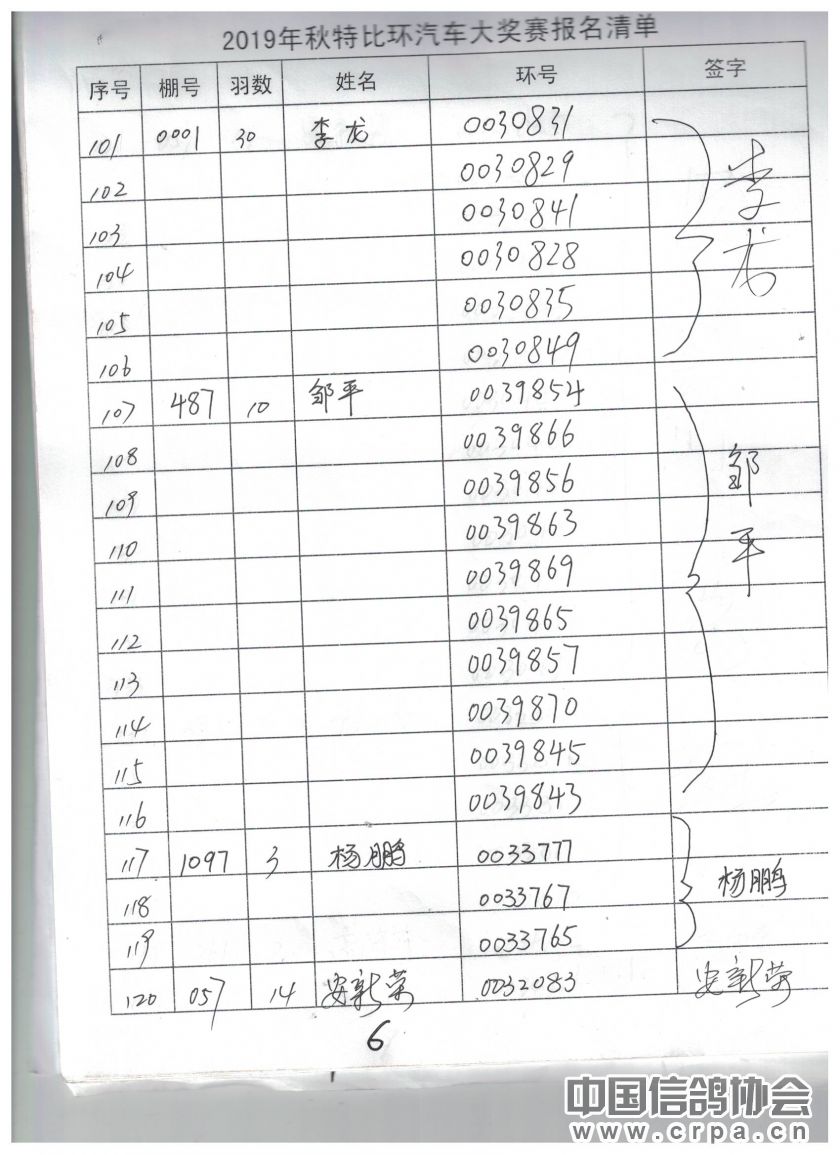 2019年秋特比环汽车大奖赛报名清单
序号 棚号 羽数 姓名 环号 签字
101 0001 30 李龙 0030831
102 0030829
103 0030841
104 0030828
105 0030835
106 0030849
李龙
107 487 10 邹平 0039854
108 0039866
109 0039856
110 0039863
111 0039869
112 0039865
113 0039857
114 0039870
115 0039845
116 0039843
邹平
117 1097 3 杨鹏 0033777
118 0033767 杨鹏
119 0033765
120 057 14 安新荣 0032083 安新荣
6
中国信鸽协会
www.crpa.cn